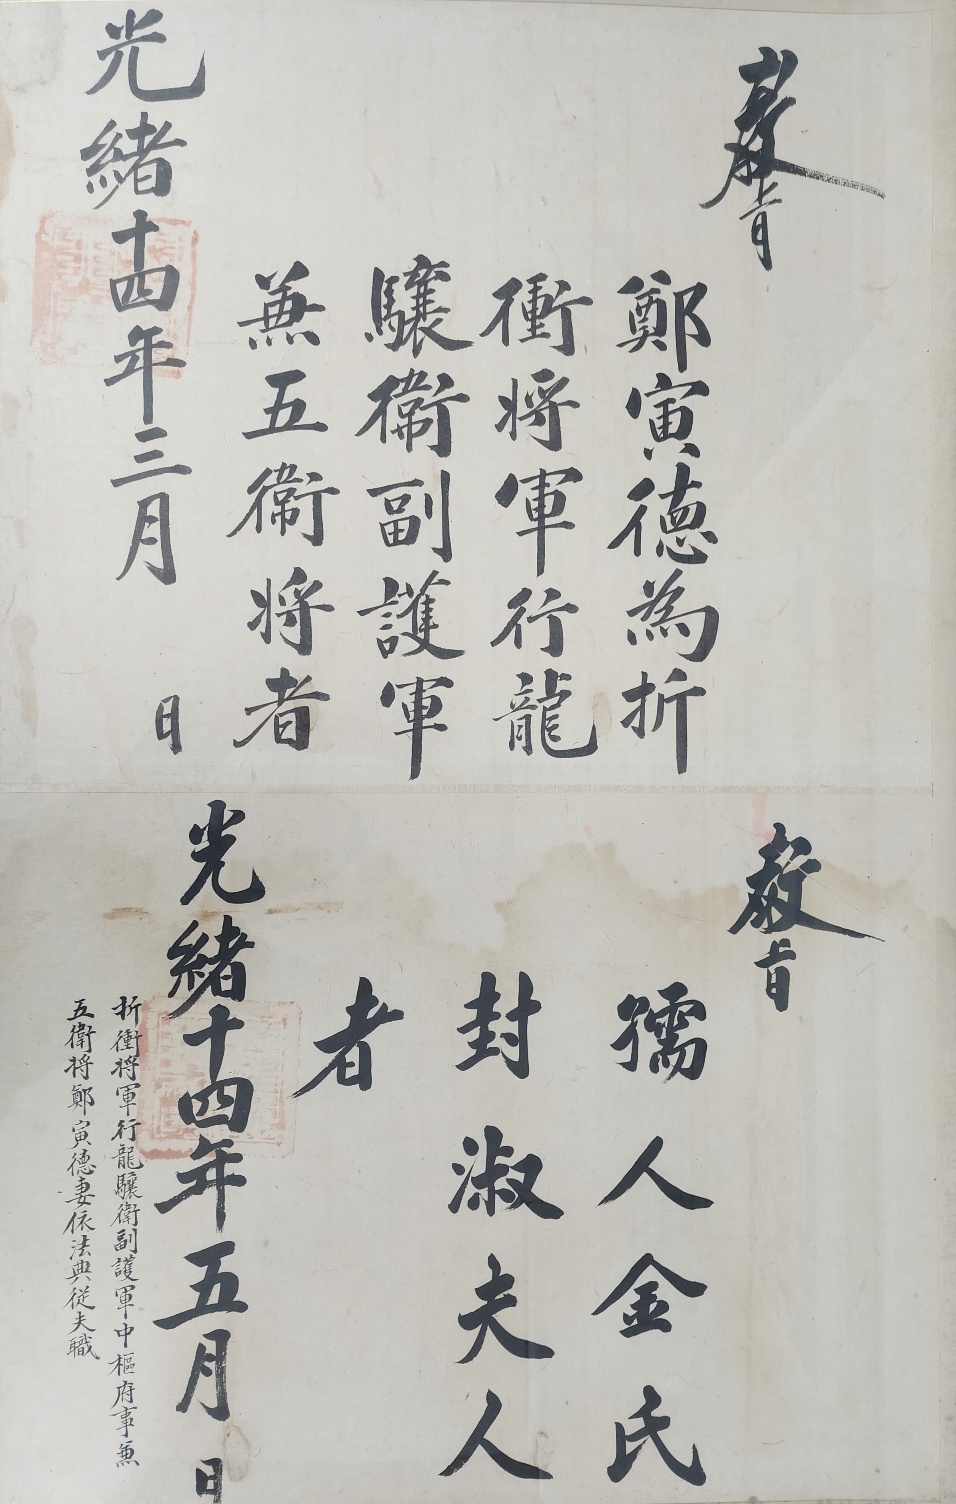 教旨
鄭寅德為折
衝将軍行龍
驤衛副護軍
兼五衛将者
光緒十四年三月 日
教旨
孺人金氏
封淑夫人
者
光緒十四年五月 日
折衝将軍行龍驤衛副護軍中樞府事兼
五衛将鄭寅德妻依法典從夫職